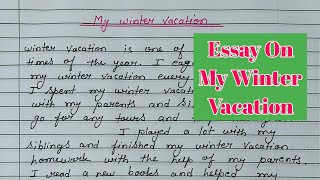 My winter vacation
winter vacation is one of
times of the year. I eag
my winter vacation every
I spent my winter vacat
with my parents and si
go for any tours and
I played a lot with my
siblings and finished my winter vacation
homework with the help of my parents.
I read a new books and helped my
Essay On
My Winter
Vacation